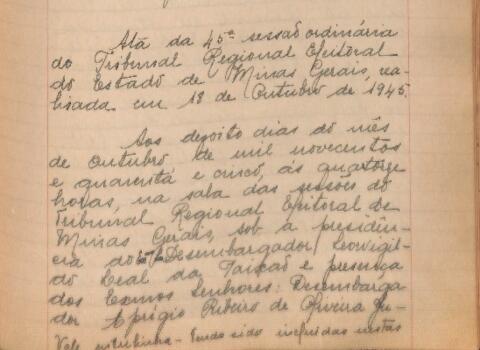 Ata da 45ª sessão ordinária
do Tribunal Regional Eleitoral
do Estado de Minas Gerais, rea-
lisada em 18 de Outubro de 1945.
Aos dezoito dias do mês
de outubro de mil novecentos
e quarenta e cinco, ás quatorze
horas, na sala das sessões do
Tribunal Regional Eleitoral de
Minas Gerais, sob a presidên-
cia do Desembargador Leovigil-
do Leal da Paixão e presença
dos Exmos Senhores: Desembarga
dor Aprigio Ribeiro de Oliveira Ju-
Vale entrelinha - Tendo sido incluidas nestas